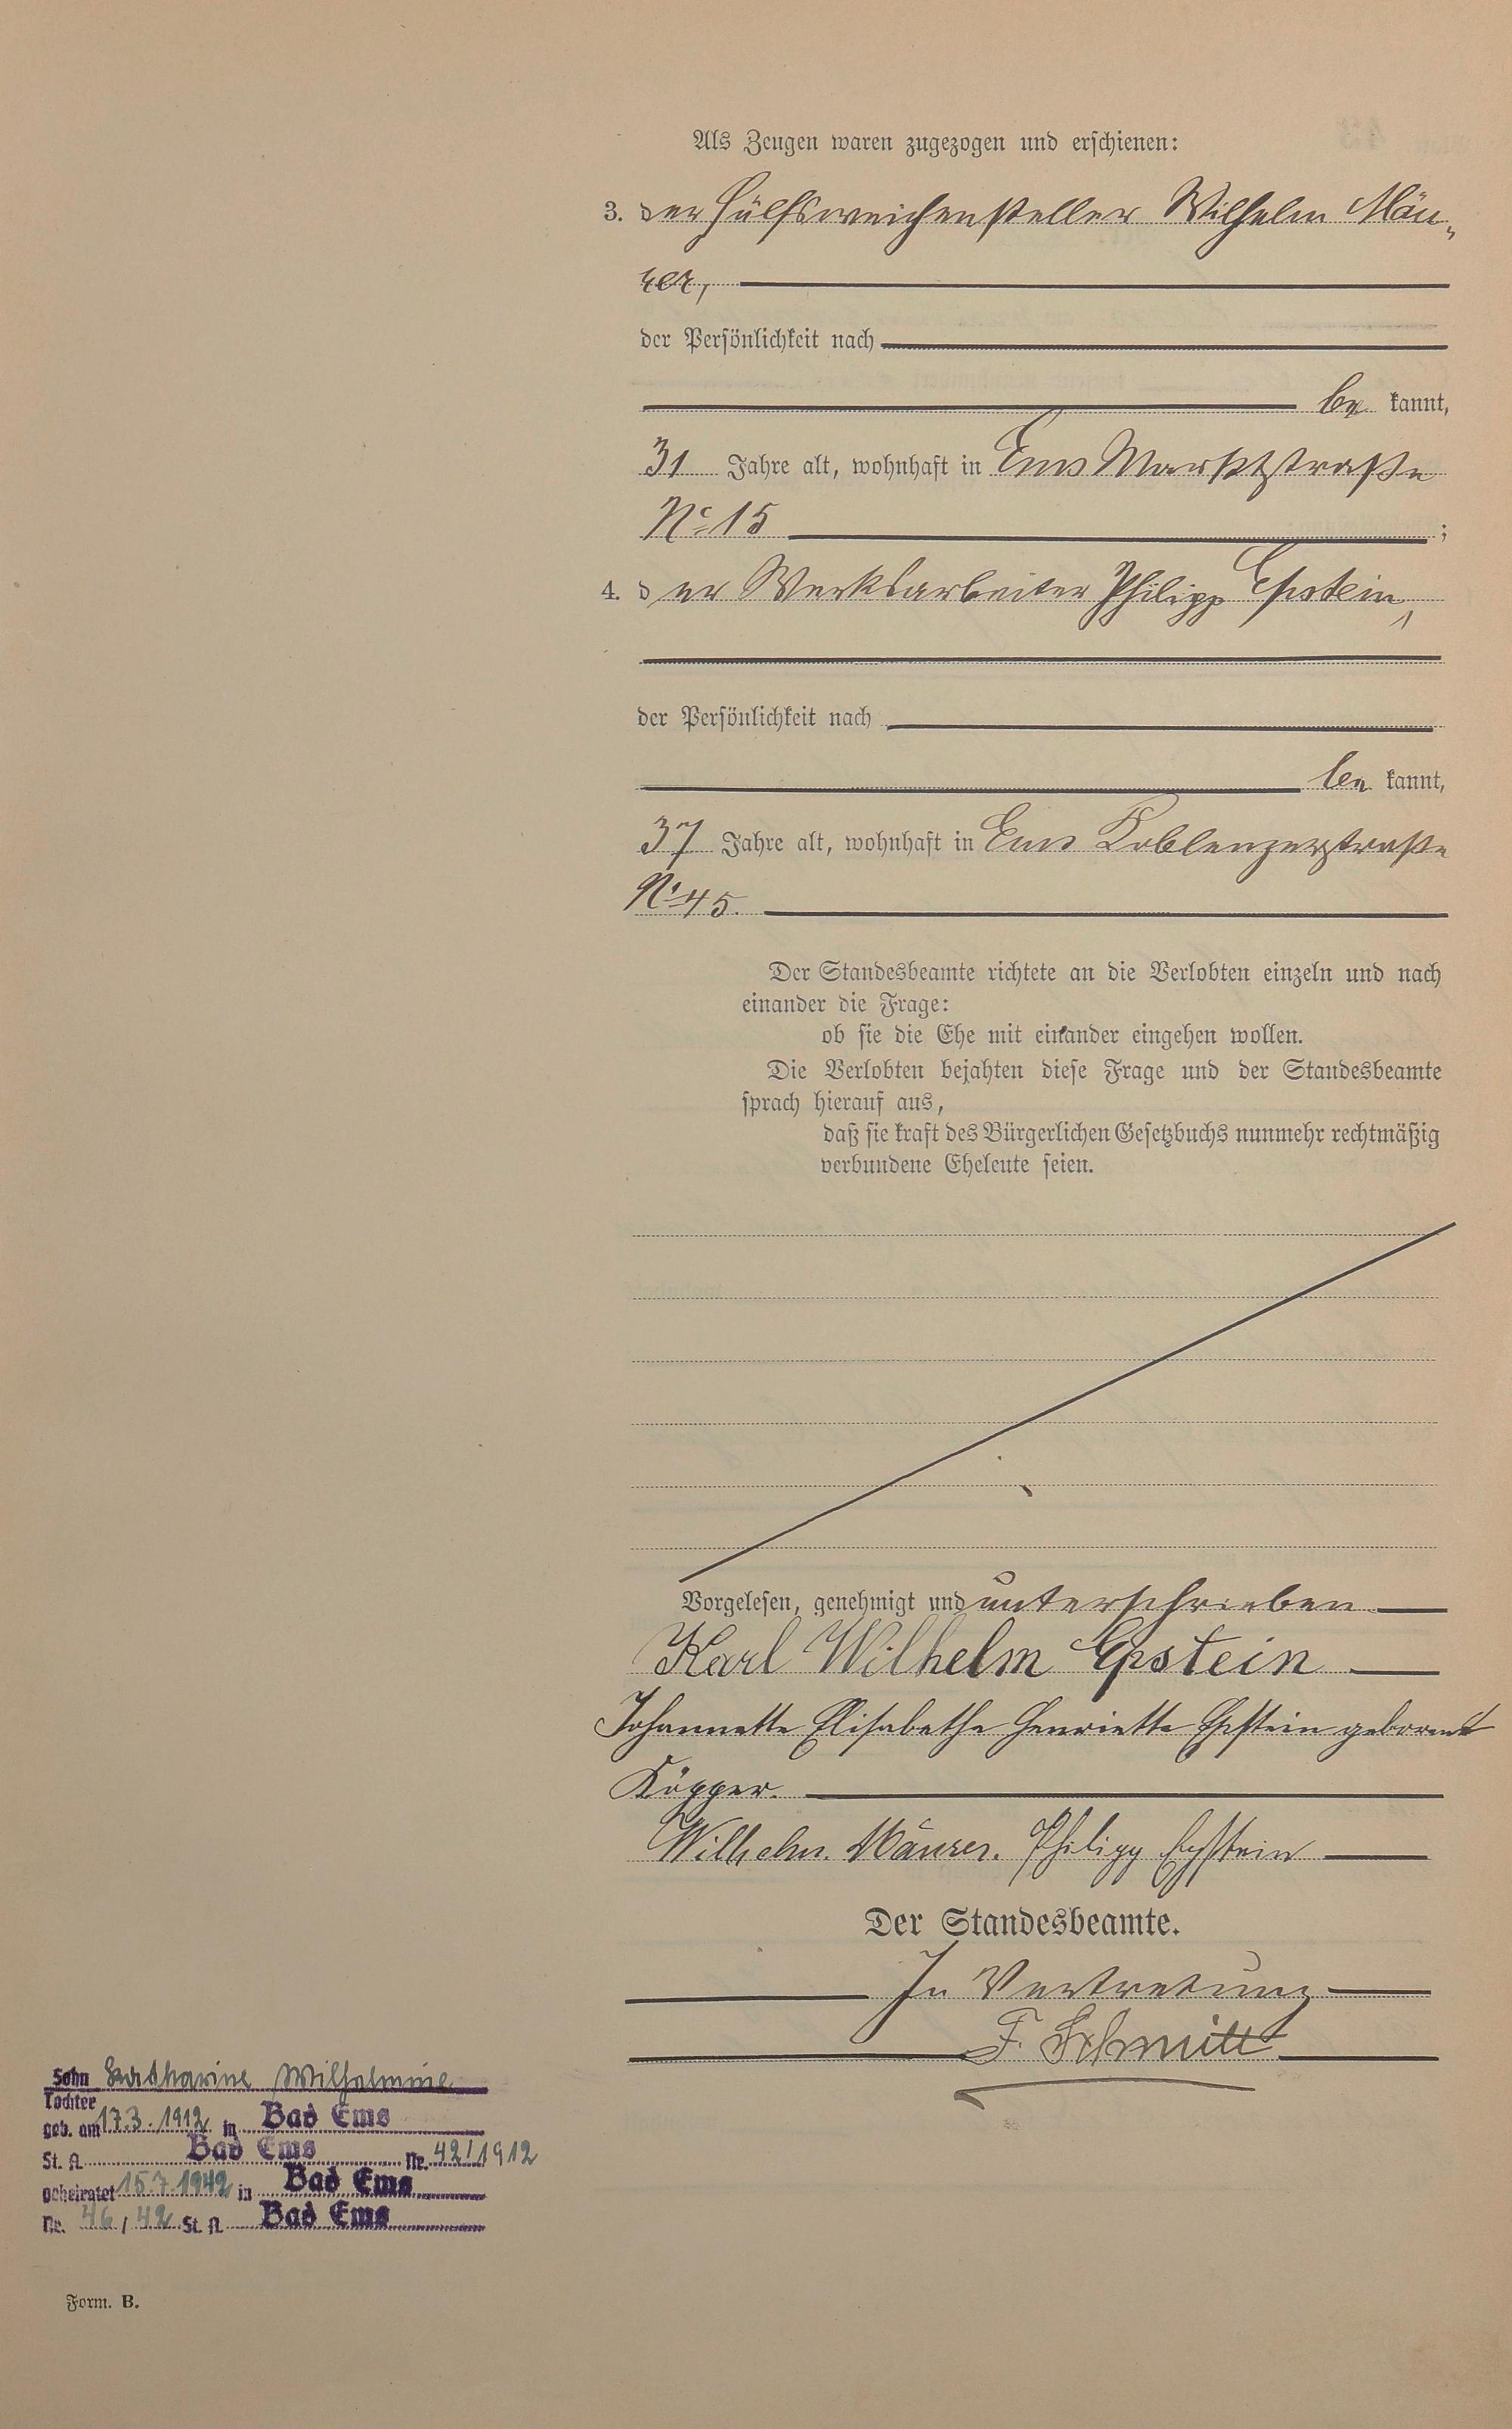 Als Zeugen waren zugezogen und erschienen:
3. der Hülfsweichensteller Wilhelm Mäu-
rer,
der Persönlichkeit nach
be kannt,
31 Jahre alt, wohnhaft in Ems Marktstraße
No 15 ;
4. der Werksarbeiter Philipp Epstein,
der Persönlichkeit nach
be kannt,
37 Jahre alt, wohnhaft in Ems Koblenzerstraße
No 45.
Der Standesbeamte richtete an die Verlobten einzeln und nach
einander die Frage:
ob sie die Ehe mit einander eingehen wollen.
Die Verlobten bejahten diese Frage und der Standesbeamte
sprach hierauf aus,
daß sie kraft des Bürgerlichen Gesetzbuchs nunmehr rechtmäßig
verbundene Eheleute seien.
Vorgelesen, genehmigt und unterschrieben
Karl Wilhelm Epstein
Johannette Elisabethe Henriette Epstein geborene
Köpper.
Wilhelm Mäurer. Philipp Epstein
Der Standesbeamte.
In Vertretung
F. Schmitt
Sohn Katharine Wilhelmine
Tochter
geb. am 17.3.1912 in Bad Ems
St. A. Bad Ems Nr. 42/1912
geheiratet 15.7.1942 in Bad Ems
Nr. 46 / 42 St. A. Bad Ems
Form. B.